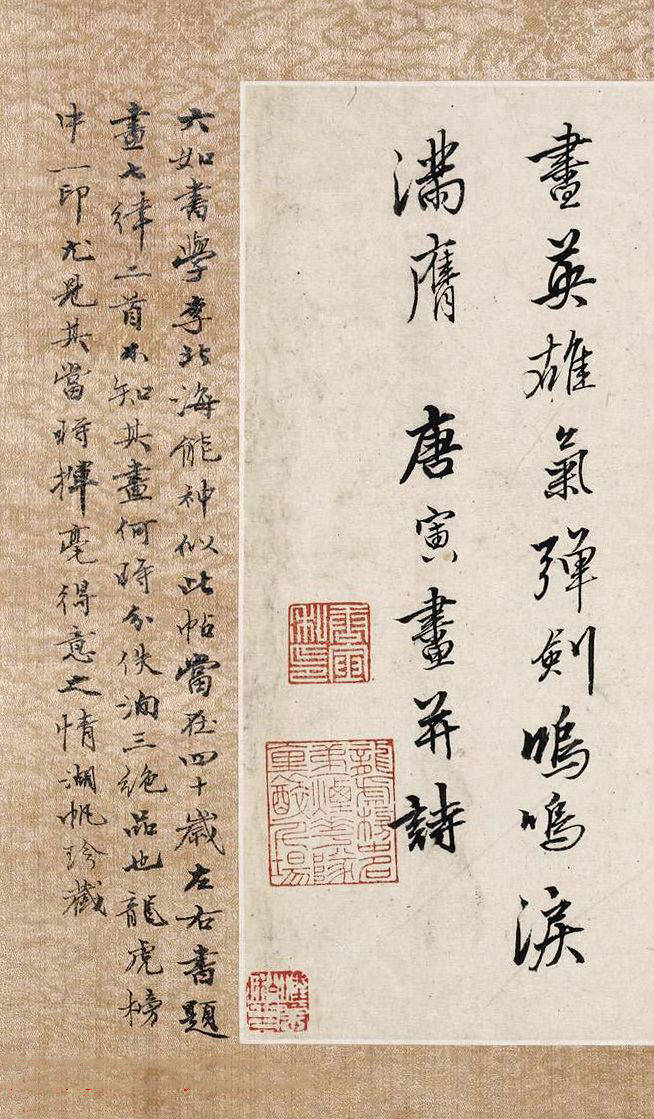 畫英雄氣彈劍嗚嗚淚
滿膺 唐寅畫并詩
唐寅私印
龍虎榜中名第一煙花隊裏醉千場
六如書學李北海能神似此帖當在四十歲左右書題
畫七律二首不知其畫何時分佚洵三絕品也龍虎榜
中一印尤見其當時揮毫得意之情湖帆珍藏